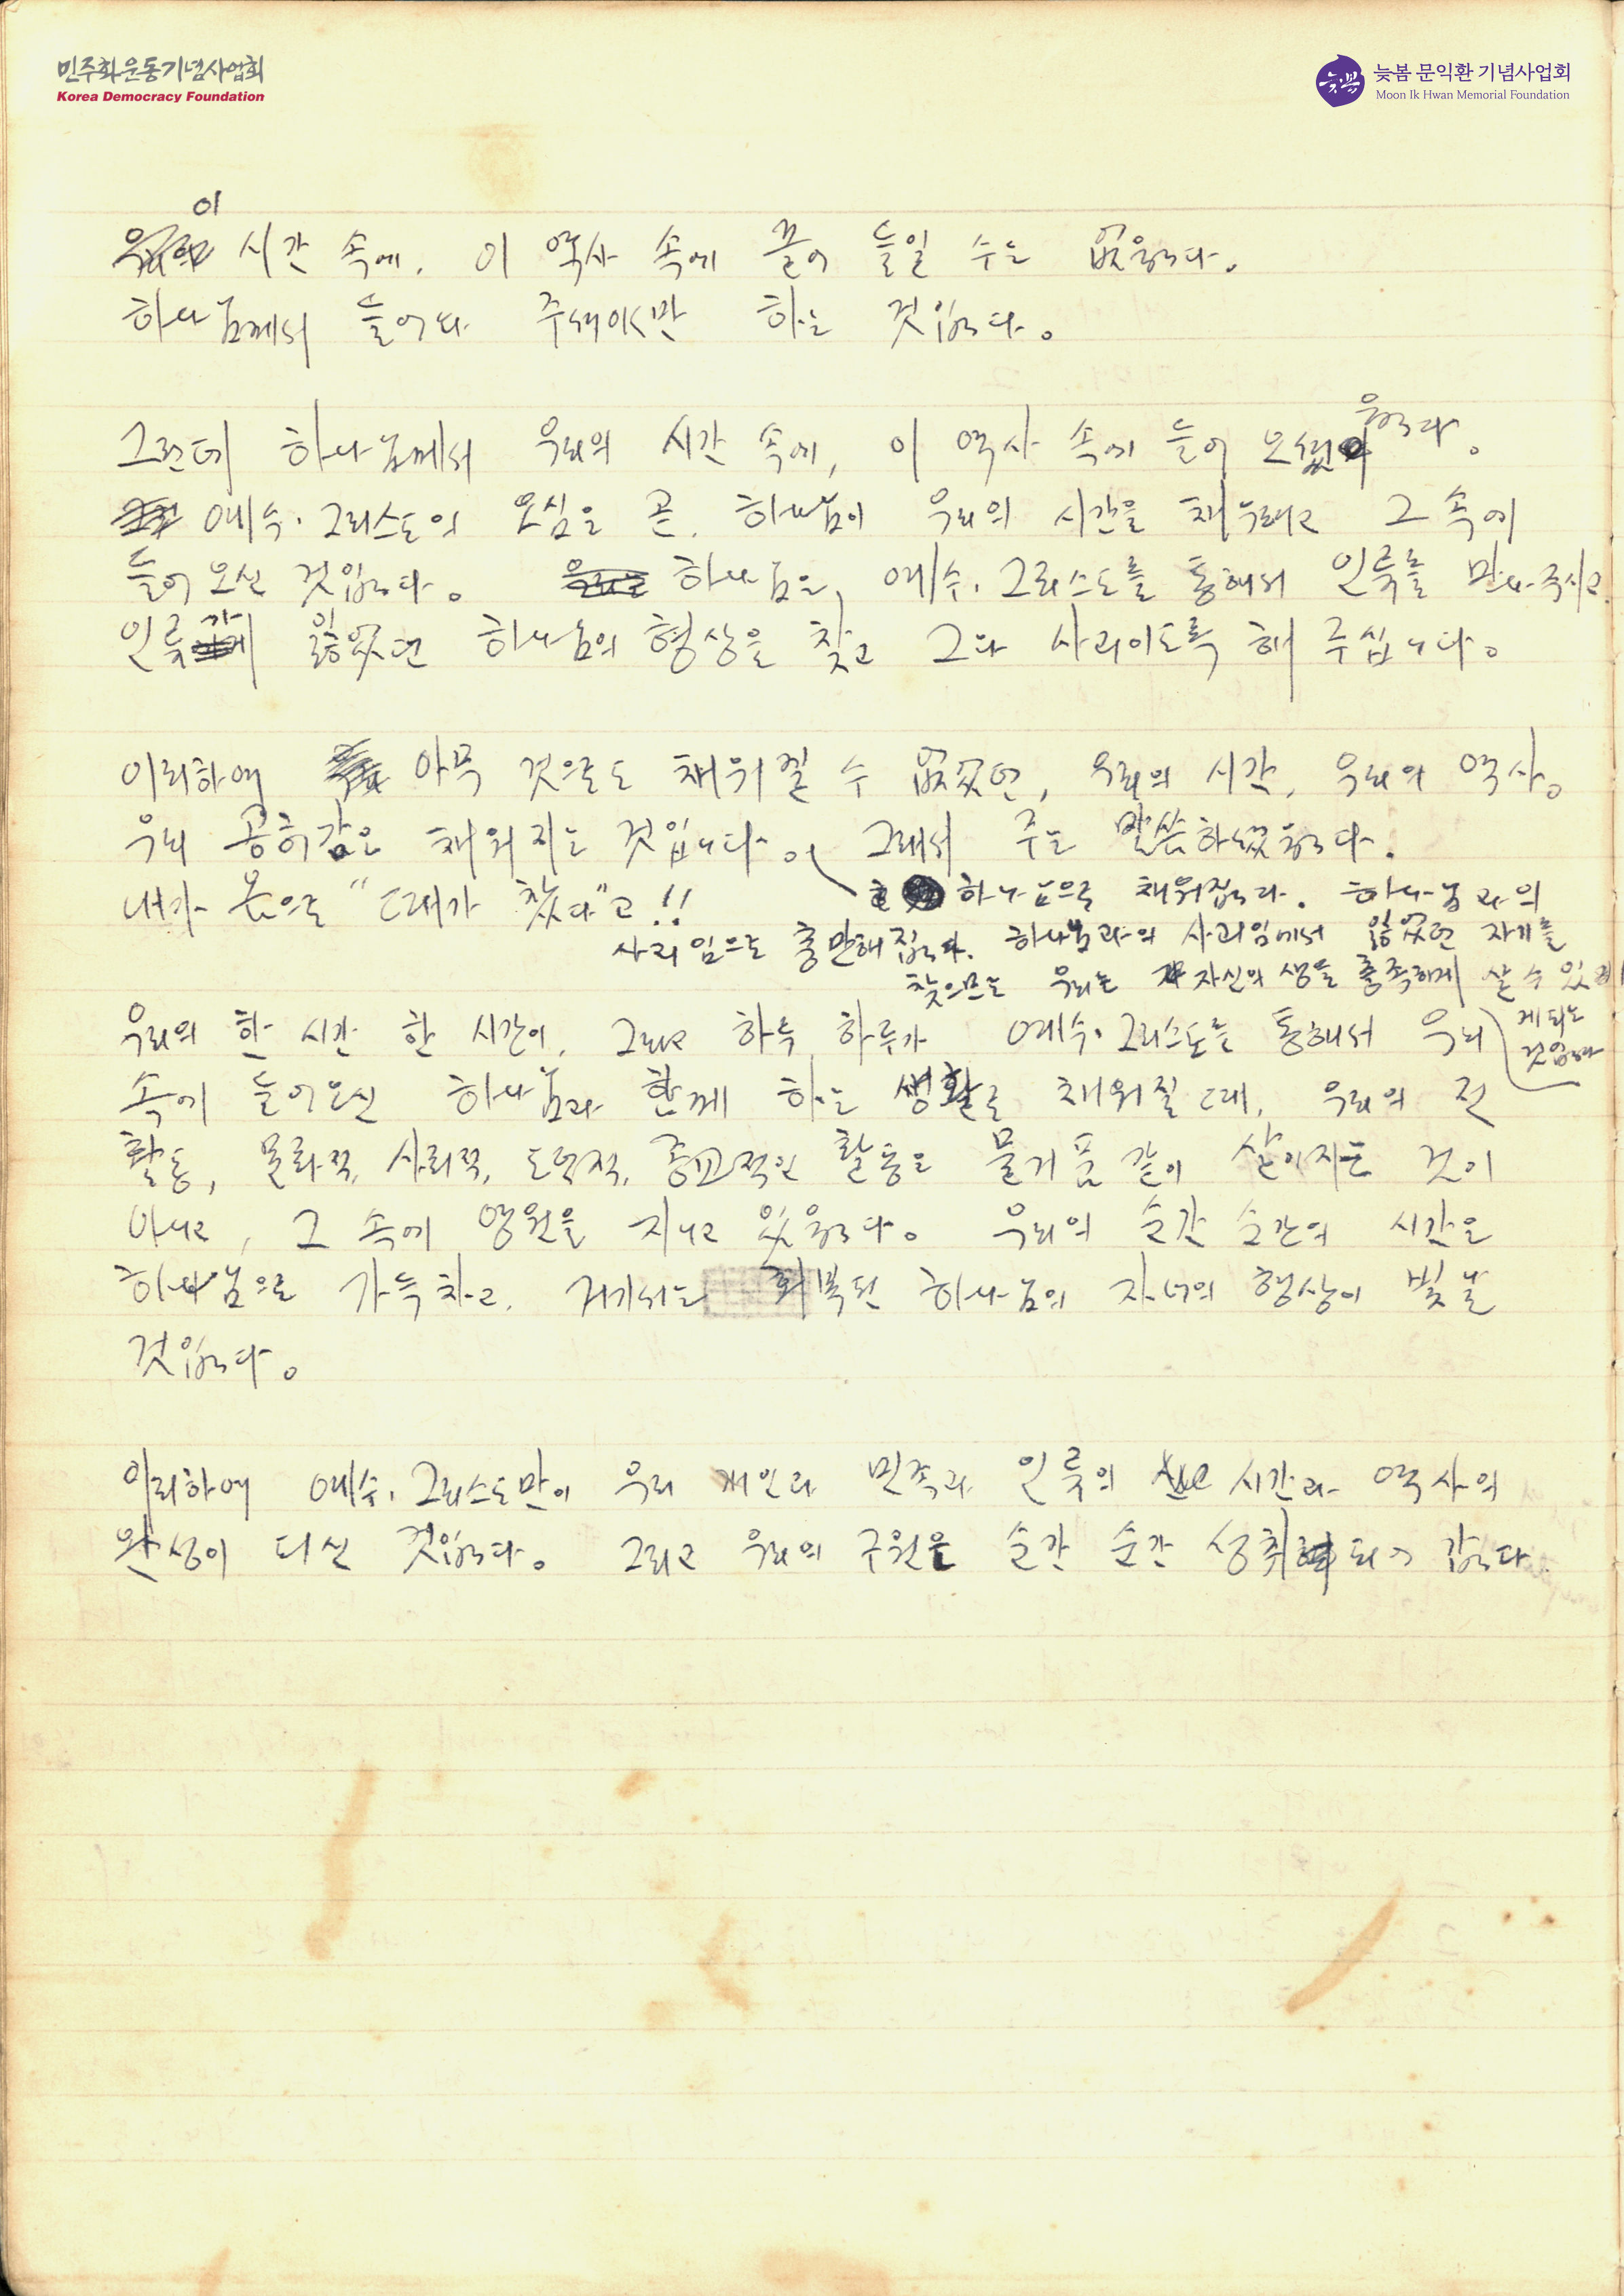 민주화운동기념사업회
Korea Democracy Foundation
늦봄 문익환 기념사업회
Moon Ik Hwan Memorial Foundation
이
시간 속에, 이 역사 속에 끌어 들일 수는 없읍니다.
하나님께서 들어와 주셔야만 하는 것입니다.
그런데 하나님께서 우리의 시간 속에, 이 역사 속에 들어 오셨읍니다.
예수·그리스도의 오심은 곧, 하나님이 우리의 시간을 채우려고 그 속에
들어 오신 것입니다. 하나님은, 예수·그리스도를 통해서 인류를 만나 주시고
인류가 잃었던 하나님의 형상을 찾고 그와 사괴이도록 해 주십니다.
이리하여 아무 것으로도 채워질 수 없었던, 우리의 시간, 우리의 역사.
우리 공허감은 채워지는 것입니다. 그래서 주는 말씀하셨읍니다.
내가 옴으로 "때가 찼다"고!!
하나님으로 채워집니다. 하나님과의
사괴임으로 충만해집니다. 하나님과의 사괴임에서 잃었던 자기를
찾으므로 우리는 자신의 생을 충족하게 살 수 있
게 되는
것입니다
우리의 한 시간 한 시간이, 그리고 하루 하루가 예수·그리스도를 통해서 우리
속에 들어오신 하나님과 함께 하는 생활로 채워질 때, 우리의 전
활동, 문화적, 사회적, 도덕적, 종교적인 활동은 물거품 같이 살아지는 것이
아니고, 그 속에 영원을 지니고 있읍니다. 우리의 순간 순간의 시간은
하나님으로 가득차고, 거기서는 회복된 하나님의 자녀의 형상이 빛날
것입니다.
이리하여 예수·그리스도만이 우리 개인과 민족과 인류의 시간과 역사의
완성이 되신 것입니다. 그리고 우리의 구원은 순간 순간 성취되어 갑니다.